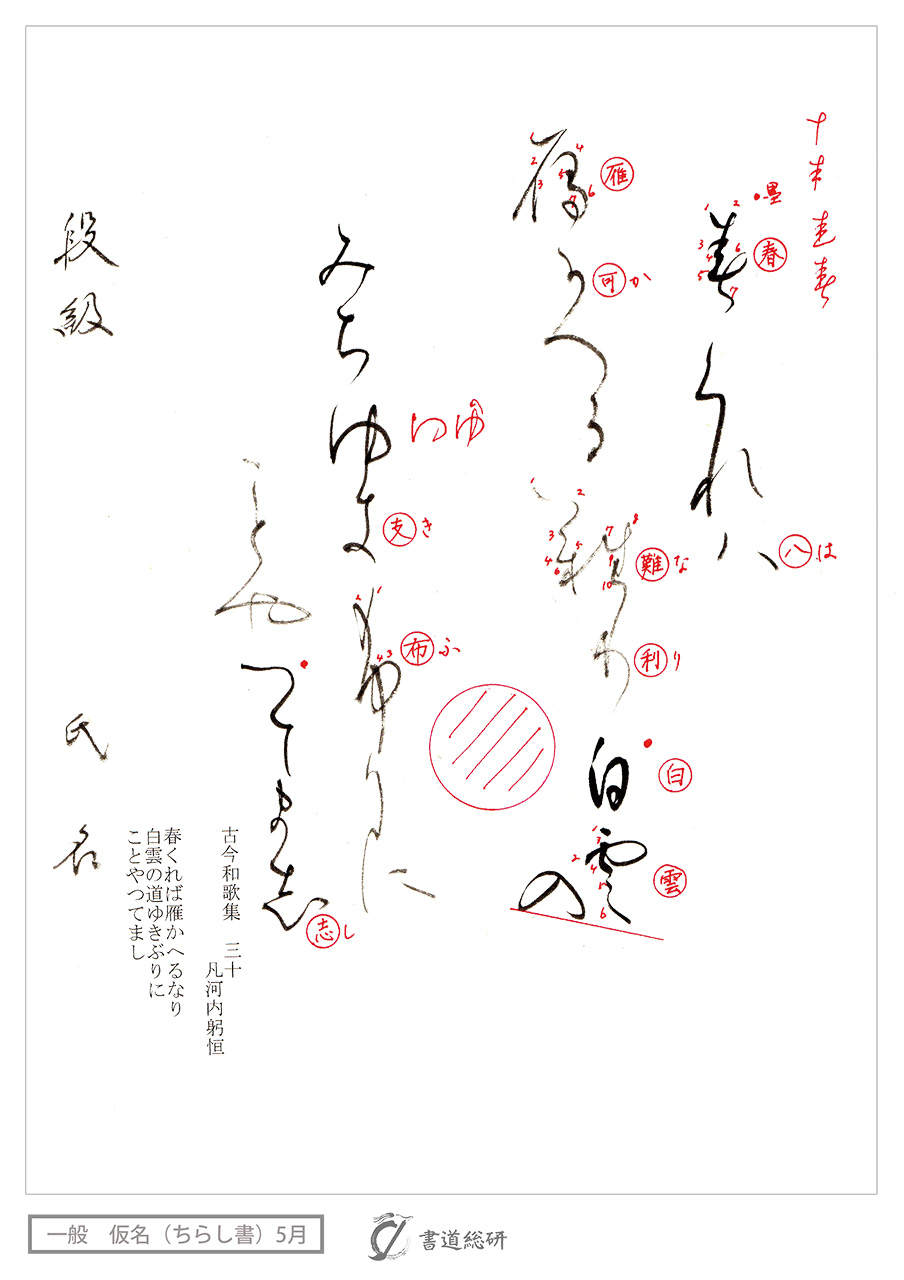 春くれ八
雁可へる難利白雲の
みちゆ支布りに
ことやつてま志
十 声 春
墨
春
八 は
雁
可 か
難 な
利 り
白
雲
ゆ
支 き
布 ふ
志 し
段級 氏名
古今和歌集 三十
凡河内躬恒
春くれば雁かへるなり
白雲の道ゆきぶりに
ことやつてまし
一般 仮名(ちらし書)5月
書道総研